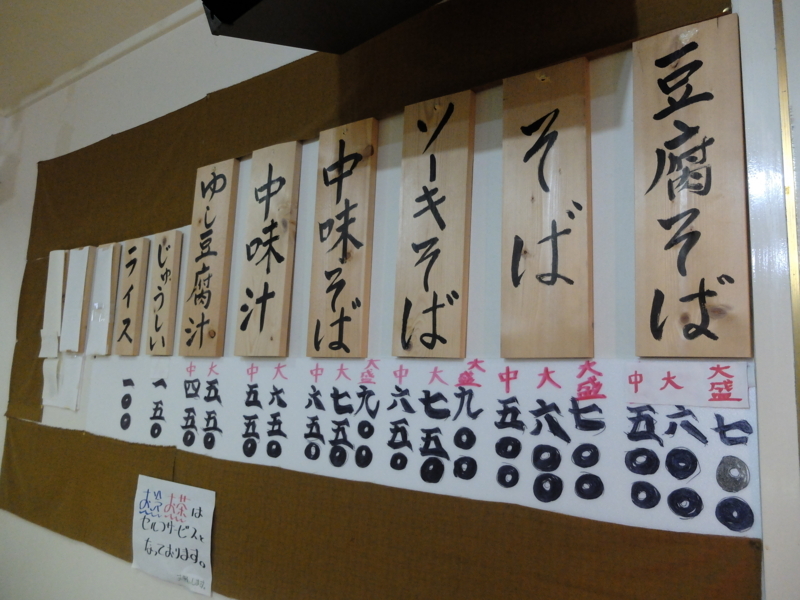 豆腐そば
大盛 大 中
七〇〇 六〇〇 五〇〇
そば
大盛 大 中
七〇〇 六〇〇 五〇〇
ソーキそば
大盛 大 中
九〇〇 七五〇 六五〇
中味そば
大盛 大 中
九〇〇 七五〇 六五〇
中味汁
大 中
六五〇 五五〇
ゆし豆腐汁
大 中
五五〇 四五〇
じゅうしい
一五〇
ライス
一〇〇
お茶は
セルフサービスと
なっております。